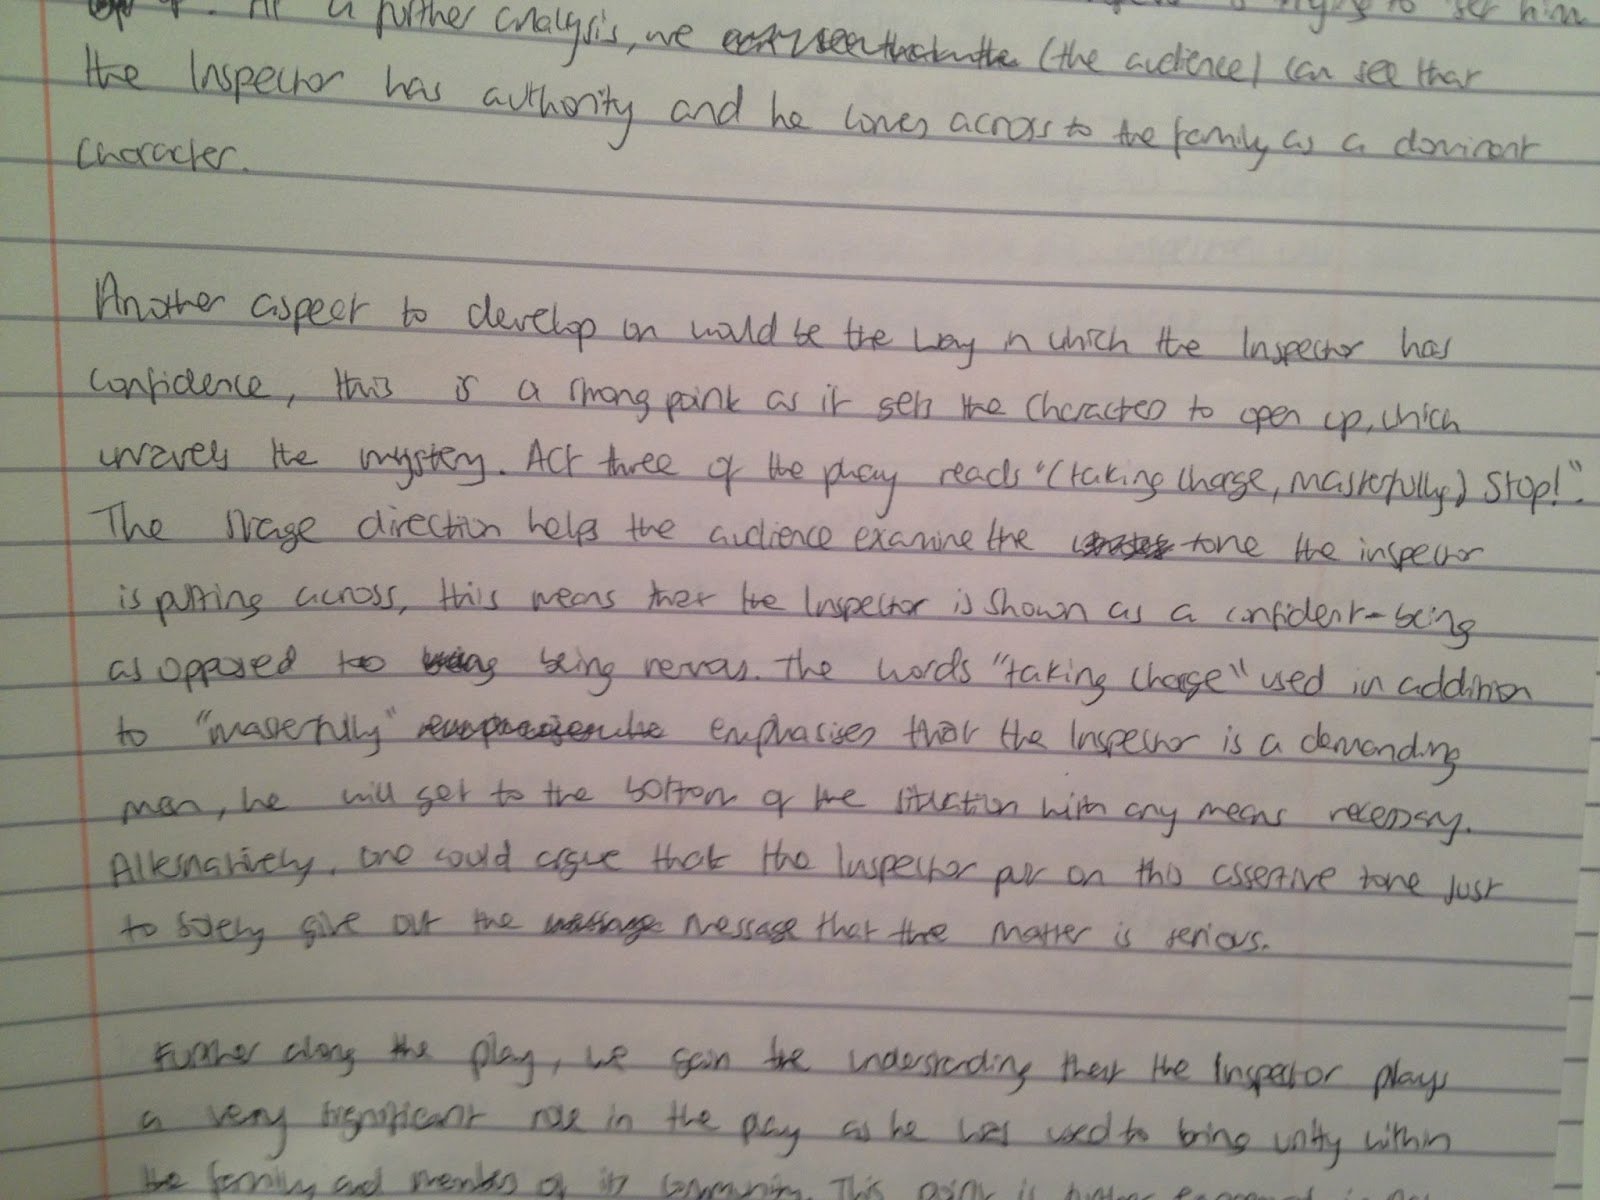 At a further analysis, we (the audience) can see that
the Inspector has authority and he comes across to the family as a dominant
character.
Another aspect to develop on would be the way in which the Inspector has
confidence, this is a strong point as it gets the characters to open up, which
unravels the mystery. Act three of the play reads "(taking charge, masterfully) Stop!".
The stage direction helps the audience examine the tone the inspector
is putting across, this means that the Inspector is shown as a confident-being
as opposed to being nervous. The words "taking charge" used in addition
to "masterfully" emphasises that the Inspector is a demanding
man, he will get to the bottom of the situation with any means necessary.
Alternatively, one could argue that the Inspector put on this assertive tone just
to solely give out the message message that the matter is serious.
Further along the play, we gain the understanding that the Inspector plays
a very significant role in the play as he was used to bring unity within
the family and members of its community. This point is